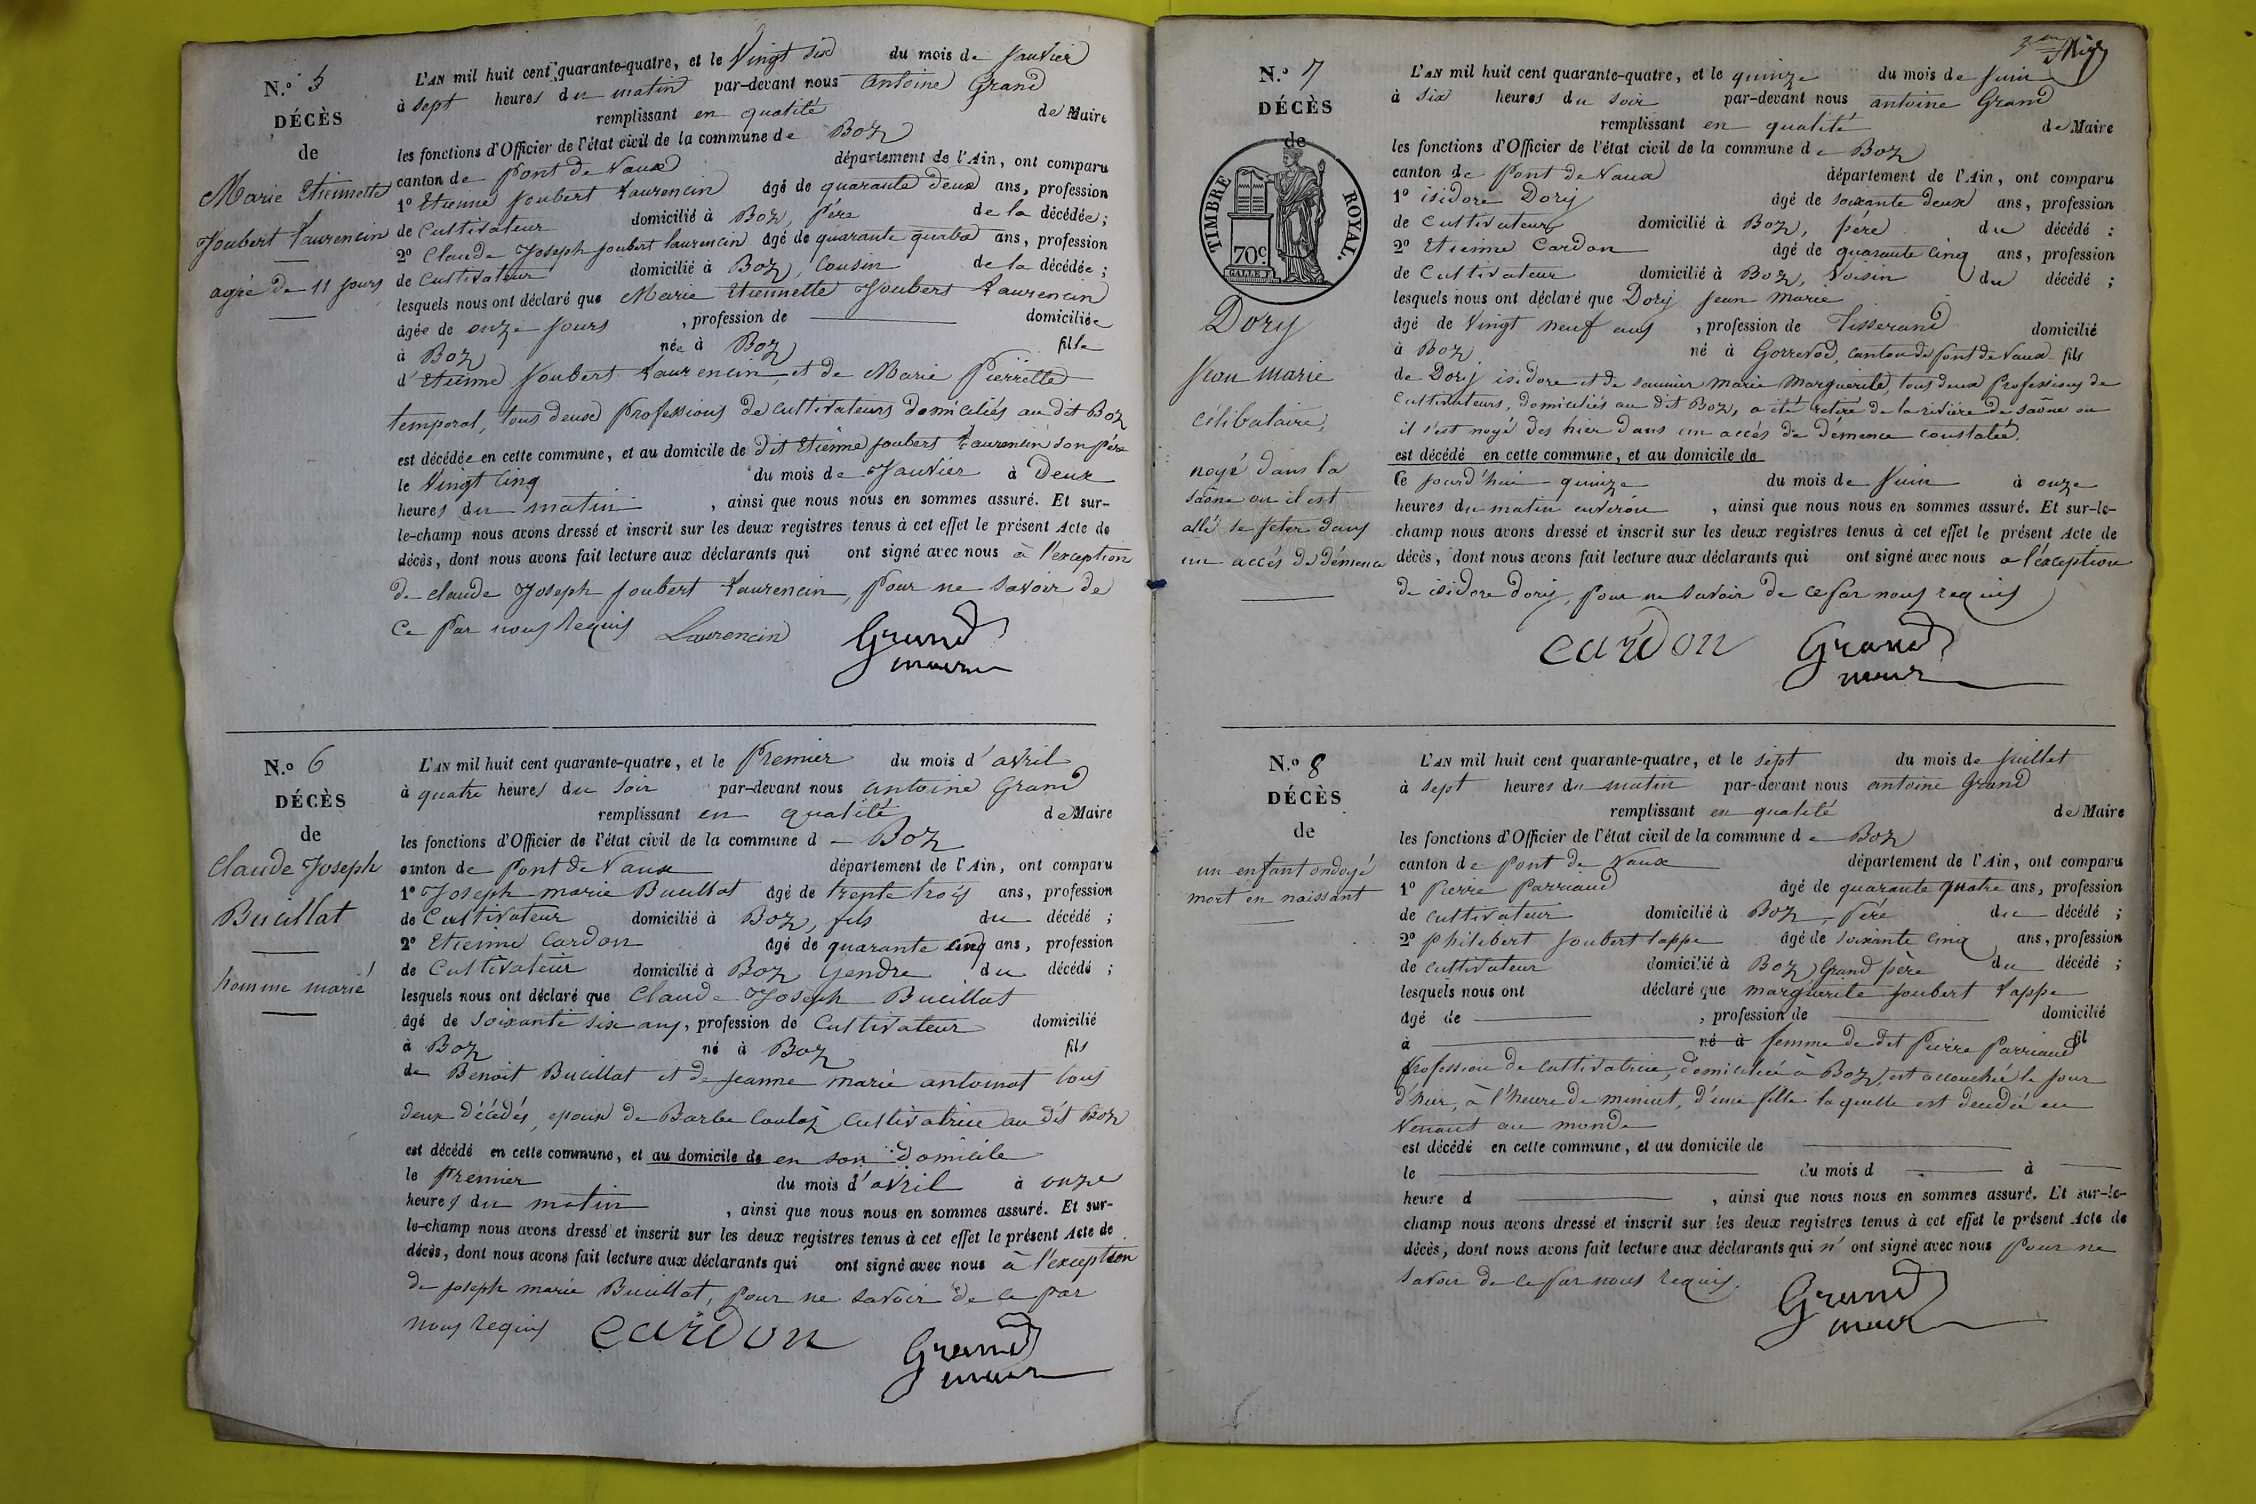 N.º 5
DÉCÈS
de
Marie Etiennette
Joubert Laurencin
agée de 11 jours
L'AN mil huit cent quarante-quatre, et le Vingt six du mois de Janvier
à sept heures du matin par-devant nous Antoine Grand
remplissant en qualité de Maire
les fonctions d'Officier de l'état civil de la commune de Boz
canton de Pont de Vaux département de l'Ain, ont comparu
1º Etienne Joubert Laurencin âgé de quarante deux ans, profession
de Cultivateur domicilié à Boz, père de la décédée;
2º Claude Joseph Joubert laurencin âgé de quarante quatre ans, profession
de Cultivateur domicilié à Boz, Cousin de la décédée;
lesquels nous ont déclaré que Marie Etiennette Joubert Laurencin
âgée de onze jours, profession de domiciliée
à Boz née à Boz fille
d'Etienne Joubert Laurencin, et de Marie Pierrette
temporal, tous deux Professions de cultivateurs domiciliés au dit Boz
est décédée en cette commune, et au domicile de dit Etienne Joubert Laurencin son père
le Vingt Cinq du mois de Janvier à Deux
heures du matin, ainsi que nous nous en sommes assuré. Et sur-
le-champ nous avons dressé et inscrit sur les deux registres tenus à cet effet le présent Acte de
décès, dont nous avons fait lecture aux déclarants qui ont signé avec nous à l'exception
de claude Joseph Joubert Laurencin, pour ne savoir de
Ce par nous Requis Laurencin Grand
maire
N.º 6
DÉCÈS
de
Claude Joseph
Bucillat
homme marié
L'AN mil huit cent quarante-quatre, et le Premier du mois d'avril
à quatre heures du soir par-devant nous antoine Grand
remplissant en qualité de Maire
les fonctions d'Officier de l'état civil de la commune de Boz
canton de Pont de Vaux département de l'Ain, ont comparu
1º Joseph marie Bucillat âgé de trente trois ans, profession
de Cultivateur domicilié à Boz, fils du décédé;
2º Etienne Cardon âgé de quarante cinq ans, profession
de Cultivateur domicilié à Boz Gendre du décédé;
lesquels nous ont déclaré que Claude Joseph Bucillat
âgé de soixante six ans, profession de Cultivateur domicilié
à Boz né à Boz fils
de Benoit Bucillat et de Jeanne marie antoinat tous
deux décédés, epoux de Barbe Cultivatrice au dit Boz
est décédé en cette commune, et au domicile de en son domicile
le Premier du mois d'avril à onze
heures du matin, ainsi que nous nous en sommes assuré. Et sur-
le-champ nous avons dressé et inscrit sur les deux registres tenus à cet effet le présent Acte de
décès, dont nous avons fait lecture aux déclarants qui ont signé avec nous à l'exception
de joseph marie Bucillat, pour ne savoir de ce par
nous requis cardon Grand
maire
N.º 7
DÉCÈS
de
TIMBRE ROYAL.
70c.
Dory
Jean marie
Célibataire,
noyé dans la
saône ou il est
allé se jeter dans
un accès de démence
L'AN mil huit cent quarante-quatre, et le quinze du mois de Juin
à six heures du soir par-devant nous antoine Grand
remplissant en qualité de Maire
les fonctions d'Officier de l'état civil de la commune de Boz
canton de Pont de Vaux département de l'Ain, ont comparu
1º isidore Dory âgé de soixante deux ans, profession
de Cultivateur domicilié à Boz, père du décédé:
2º Etienne Cardon âgé de quarante cinq ans, profession
de Cultivateur domicilié à Boz, Voisin du décédé;
lesquels nous ont déclaré que Dory Jean Marie
âgé de Vingt neuf ans, profession de Tisserand domicilié
à Boz né à Gorrevod, canton de Pont de Vaux fils
de Dory isidore et de saunier marie Marguerite, tous deux Professions de
Cultivateurs, domiciliés au dit Boz, a été retiré de la rivière de saône ou
il s'est noyé des hier dans un accès de démence constatée.
est décédé en cette commune, et au domicile de
Ce jourd'hui quinze du mois de Juin à onze
heures du matin environ, ainsi que nous nous en sommes assuré. Et sur-le-
champ nous avons dressé et inscrit sur les deux registres tenus à cet effet le présent Acte de
décès, dont nous avons fait lecture aux déclarants qui ont signé avec nous a l'exception
de isidore dory, pour ne savoir de ce par nous requis
cardon Grand
maire
N.º 8
DÉCÈS
de
un enfant ondoyé
mort en naissant
L'AN mil huit cent quarante-quatre, et le sept du mois de Juillet
à sept heures du matin par-devant nous antoine Grand
remplissant en qualité de Maire
les fonctions d'Officier de l'état civil de la commune de Boz
canton de Pont de Vaux département de l'Ain, ont comparu
1º Pierre Parriaud âgé de quarante quatre ans, profession
de cultivateur domicilié à Boz, Père du décédé;
2º philibert Joubert lappe âgé de soixante cinq ans, profession
de cultivateur domicilié à Boz, Grand père du décédé;
lesquels nous ont déclaré que marguerite Joubert Lappe
âgé de, profession de domicilié
à né à femme de dit Pierre Parriaud fil
Profession de Cultivatrice, domiciliée à Boz, est accouchée le jour
d'hier, à l'heure de minuit, d'une fille laquelle est décédée en
Venant au monde
est décédé en cette commune, et au domicile de
le du mois d à
heure d, ainsi que nous nous en sommes assuré. Et sur-le-
champ nous avons dressé et inscrit sur les deux registres tenus à cet effet le présent Acte de
décès, dont nous avons fait lecture aux déclarants qui n'ont signé avec nous pour ne
savoir de ce par nous requis. Grand
maire